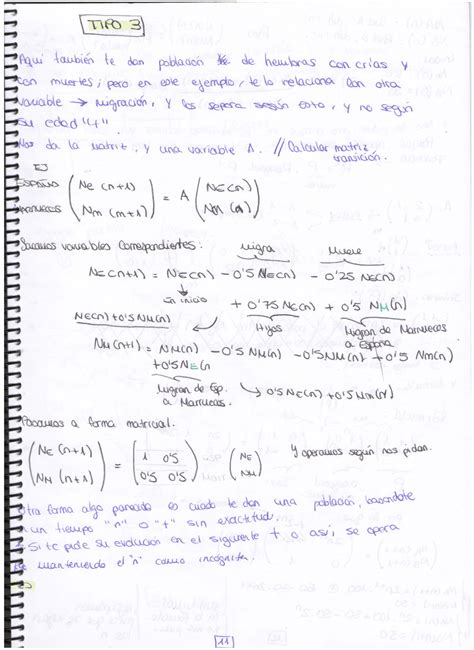 TIPO 3
Aquí también te dan población de hembras con crías y
con muertes; pero en este ejemplo, te lo relaciona con otra
variable → migración, y los separa según esto, y no según
su edad "4".
Nos da la matriz, y una variable A. // Calcular matriz
transición.
EJ
ESPAÑOLES MARRUECOS (NE (n+1) NM (m+1)) = A (NE(n) NM (n))
Sacamos variables correspondientes: Migra Muere
NE(n+1) = NE(n) - 0'5 NE(n) - 0'25 NE(n)
En inicio + 0'75 NE(n) + 0'5 NM(n)
NE(n)+0'5NM(n) Hijos Migran de Marruecos
a España
NM(n+1) = NM(n) - 0'5 NM(n) - 0'5NM(n) + 0'5 NM(n)
+0'5NE(n
Migran de Esp. 0'5 NE(n)+0'5 NM(n)
a Marruecos.
Pasamos a forma matricial.
(NE (n+1) NM (n+1)) = (1 0'5 0'5 0'5) (NE NM) Y operamos según nos pidan.
Otra forma algo parecida es cuando te dan una población, basandote
en un tiempo "n" o "t" sin exactitud.
Si te pide su evolución en el siguiente t o así, se opera
manteniendo el "n" como incognita.
11